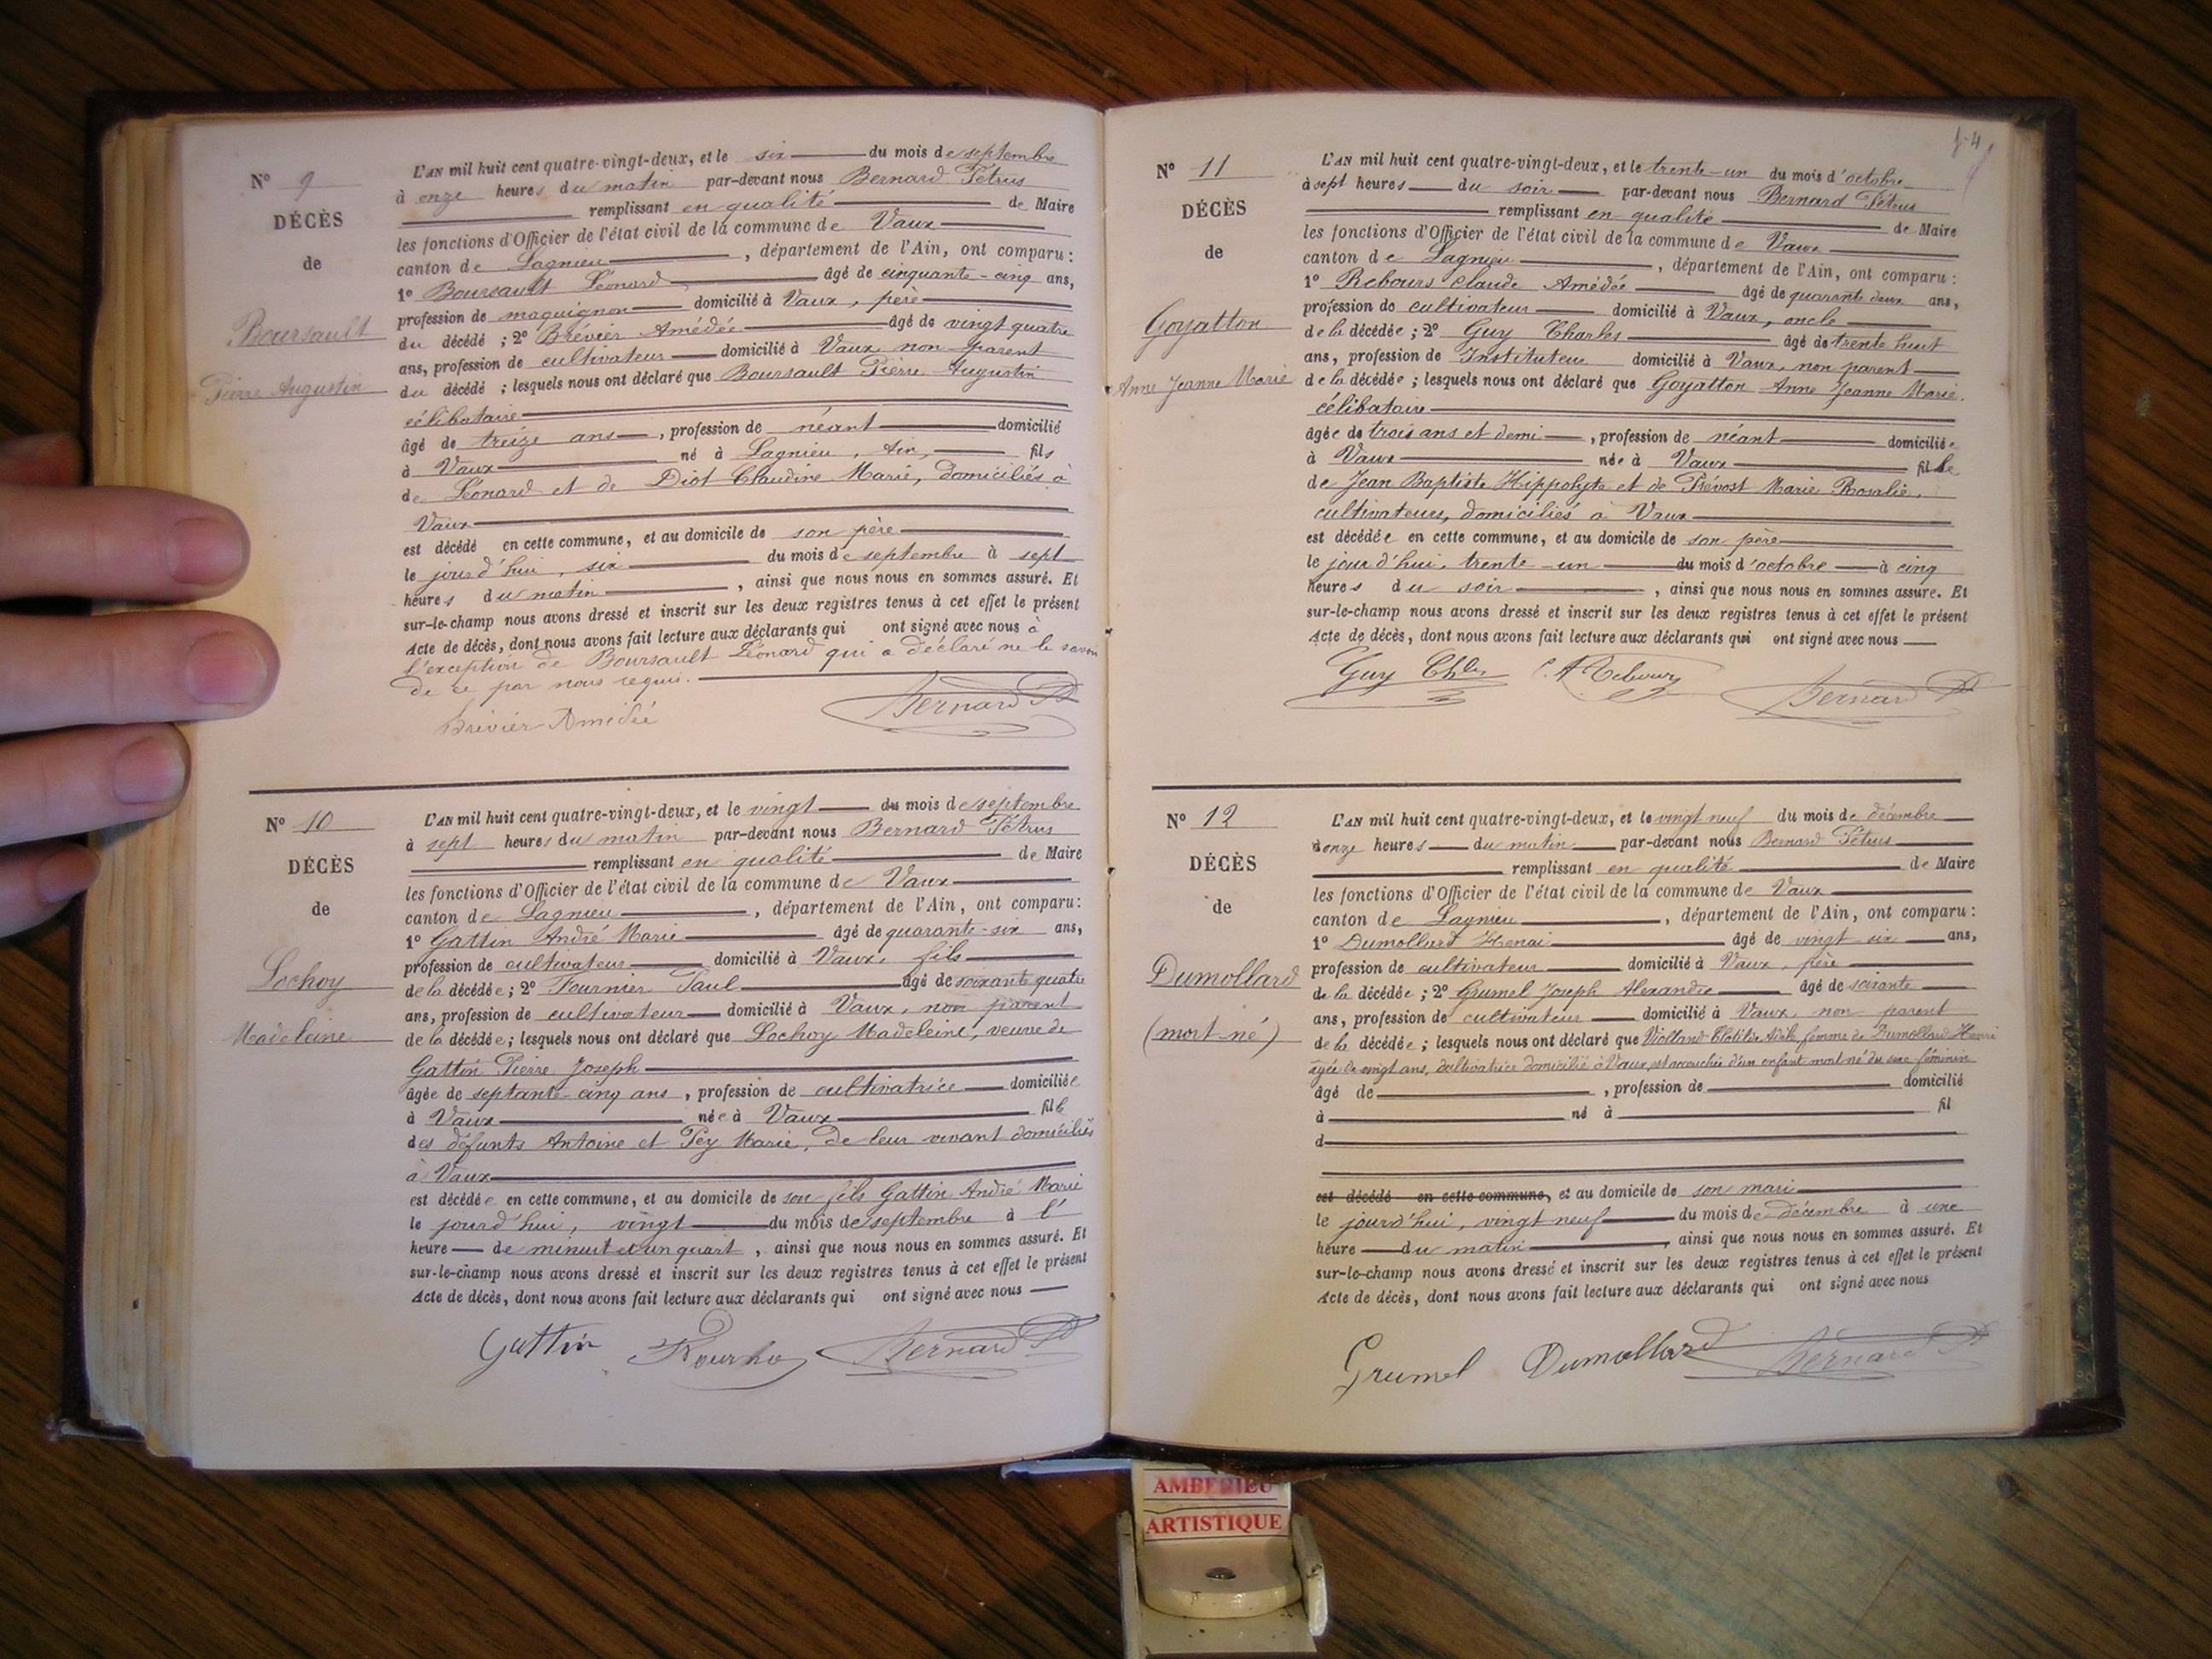 N° 9
DÉCÈS
de
Boursault
Pierre Augustin
L'AN mil huit cent quatre-vingt-deux, et le six du mois de septembre
à onze heures du matin par-devant nous Bernard Pétrus
remplissant en qualité de Maire
les fonctions d'Officier de l'état civil de la commune de Vaux
canton de Lagnieu, département de l'Ain, ont comparu :
1° Boursault Léonard âgé de cinquante-cinq ans,
profession de maquignon domicilié à Vaux, père
du décédé ; 2° Brévier Amédée âgé de vingt quatre
ans, profession de cultivateur domicilié à Vaux non parent
du décédé ; lesquels nous ont déclaré que Boursault Pierre Augustin
célibataire
âgé de treize ans, profession de néant domicilié
à Vaux né à Lagnieu, Ain, fils
de Léonard et de Diot Claudine Marie, domiciliés à
Vaux
est décédé en cette commune, et au domicile de son père
le jourd'hui, six du mois de septembre à sept
heures du matin, ainsi que nous nous en sommes assuré. Et
sur-le-champ nous avons dressé et inscrit sur les deux registres tenus à cet effet le présent
Acte de décès, dont nous avons fait lecture aux déclarants qui ont signé avec nous à
l'exception de Boursault Léonard qui a déclaré ne le savoir
de ce par nous requis.
Brévier Amédée Bernard P
N° 10
DÉCÈS
de
Lochoy
Madeleine
L'AN mil huit cent quatre-vingt-deux, et le vingt du mois de septembre
à sept heures du matin par-devant nous Bernard Pétrus
remplissant en qualité de Maire
les fonctions d'Officier de l'état civil de la commune de Vaux
canton de Lagnieu, département de l'Ain, ont comparu :
1° Gattin André Marie âgé de quarante-six ans,
profession de cultivateur domicilié à Vaux, fils
de la décédée ; 2° Fournier Paul âgé de soixante quatre
ans, profession de cultivateur domicilié à Vaux, non parent
de la décédée ; lesquels nous ont déclaré que Lochoy Madeleine, veuve de
Gattin Pierre Joseph
âgée de septante-cinq ans, profession de cultivatrice domiciliée
à Vaux née à Vaux fille
des défunts Antoine et Pey Marie, de leur vivant domiciliés
à Vaux
est décédée en cette commune, et au domicile de son fils Gattin André Marie
le jourd'hui, vingt du mois de septembre à l'
heure de minuit et un quart, ainsi que nous nous en sommes assuré. Et
sur-le-champ nous avons dressé et inscrit sur les deux registres tenus à cet effet le présent
Acte de décès, dont nous avons fait lecture aux déclarants qui ont signé avec nous
Gattin Bernard P
f. 4
N° 11
DÉCÈS
de
Goyatton
Anne Jeanne Marie
L'AN mil huit cent quatre-vingt-deux, et le trente-un du mois d'octobre
à sept heures du soir par-devant nous Bernard Pétrus
remplissant en qualité de Maire
les fonctions d'Officier de l'état civil de la commune de Vaux
canton de Lagnieu, département de l'Ain, ont comparu :
1° Rebours Claude Amédée âgé de quarante deux ans,
profession de cultivateur domicilié à Vaux, oncle
de la décédée ; 2° Guy Charles âgé de trente huit
ans, profession de Instituteur domicilié à Vaux, non parent
de la décédée ; lesquels nous ont déclaré que Goyatton Anne Jeanne Marie.
célibataire
âgée de trois ans et demi, profession de néant domiciliée
à Vaux née à Vaux fille
de Jean Baptiste Hippolyte et de Prévost Marie Rosalie,
cultivateurs, domiciliés à Vaux
est décédée en cette commune, et au domicile de son père
le jourd'hui, trente-un du mois d'octobre à cinq
heures du soir, ainsi que nous nous en sommes assuré. Et
sur-le-champ nous avons dressé et inscrit sur les deux registres tenus à cet effet le présent
Acte de décès, dont nous avons fait lecture aux déclarants qui ont signé avec nous
Guy Chles C. A Rebours Bernard P
N° 12
DÉCÈS
de
Dumollard
(mort-né)
L'AN mil huit cent quatre-vingt-deux, et le vingt neuf du mois de décembre
à onze heures du matin par-devant nous Bernard Pétrus
remplissant en qualité de Maire
les fonctions d'Officier de l'état civil de la commune de Vaux
canton de Lagnieu, département de l'Ain, ont comparu :
1° Dumollard Henri âgé de vingt six ans,
profession de cultivateur domicilié à Vaux, père
de la décédée ; 2° Grumel Joseph Alexandre âgé de soixante
ans, profession de cultivateur domicilié à Vaux, non parent
de la décédée ; lesquels nous ont déclaré que Violland Clotilde Adèle femme de Dumollard Henri
âgée de vingt ans, cultivatrice domicilié à Vaux, est accouchée d'un enfant mort-né du sexe féminin
âgé de, profession de domicilié
à né à fil
d
est décédé en cette commune, et au domicile de son mari
le jourd'hui, vingt neuf du mois de décembre à une
heure du matin, ainsi que nous nous en sommes assuré. Et
sur-le-champ nous avons dressé et inscrit sur les deux registres tenus à cet effet le présent
Acte de décès, dont nous avons fait lecture aux déclarants qui ont signé avec nous
Grumel Dumollard Bernard P
AMBERIEU
ARTISTIQUE